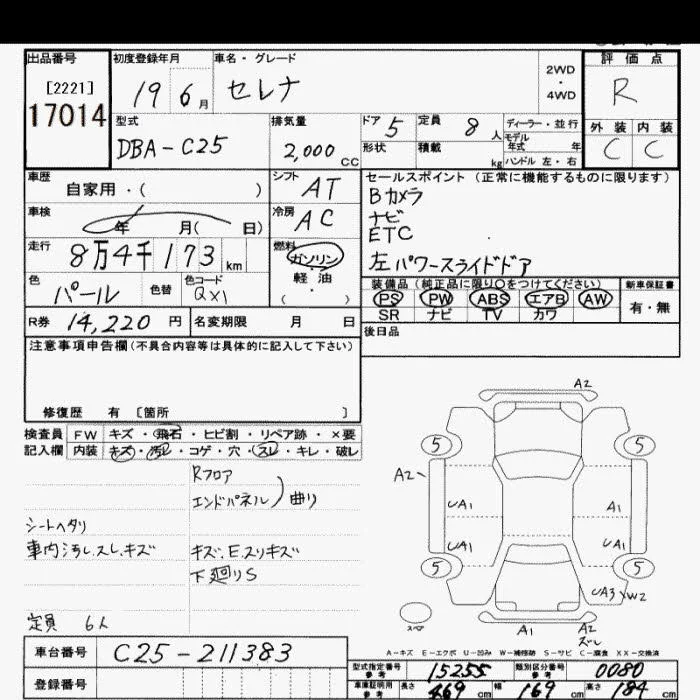 出品番号 初度登録年月 車名・グレード 評価点
[2221]
17014
19 6月 セレナ
2WD
・
4WD
R
型式 排気量 ドア 5 定員 8人 ディーラー・並行 外装 内装
DBA-C25 2,000 CC 形状 積載 kg モデル年式 年 C C
ハンドル 左・右
車歴 自家用・( ) シフト AT セールスポイント (正常に機能するものに限ります)
Bカメラ
ナビ
ETC
左パワースライドドア
車検 年 月( 日) 冷房 AC
走行 8万4千173km 燃料 ガソリン
軽油
・
( )
色 パール 色替 色コード QX1
装備品 (純正品に限り○をつけてください) 新車保証書
PS PW ABS エアB AW 有・無
SR ナビ TV カワ
R券 14,220円 名変期限 月 日 後日品
注意事項申告欄(不具合内容等は具体的に記入して下さい)
修復歴 有 〔箇所 〕
検査員 FW キズ・飛石・ヒビ割・リペア跡・×要
記入欄 内装 キズ・汚レ・コゲ・穴・スレ・キレ・破レ
Rフロア
エンドパネル 曲り
シートヘタリ
車内汚レ.スレ.キズ
キズ.E.スリキズ
下廻りS
定員 6人
A2
5 5
A2
UA1 A1
UA1 A1
5 5
UA3 W2
スペア A1 A2
ズレ
A-キズ E-エクボ U-凹み W-補修跡 S-サビ C-腐食 XX-交換済
車台番号 C25-211383
登録番号
型式指定番号 参考 15255 類別区分番号 参考 0080
車庫証明用 参考 長さ 469 cm 幅 169 cm 高さ 184 cm